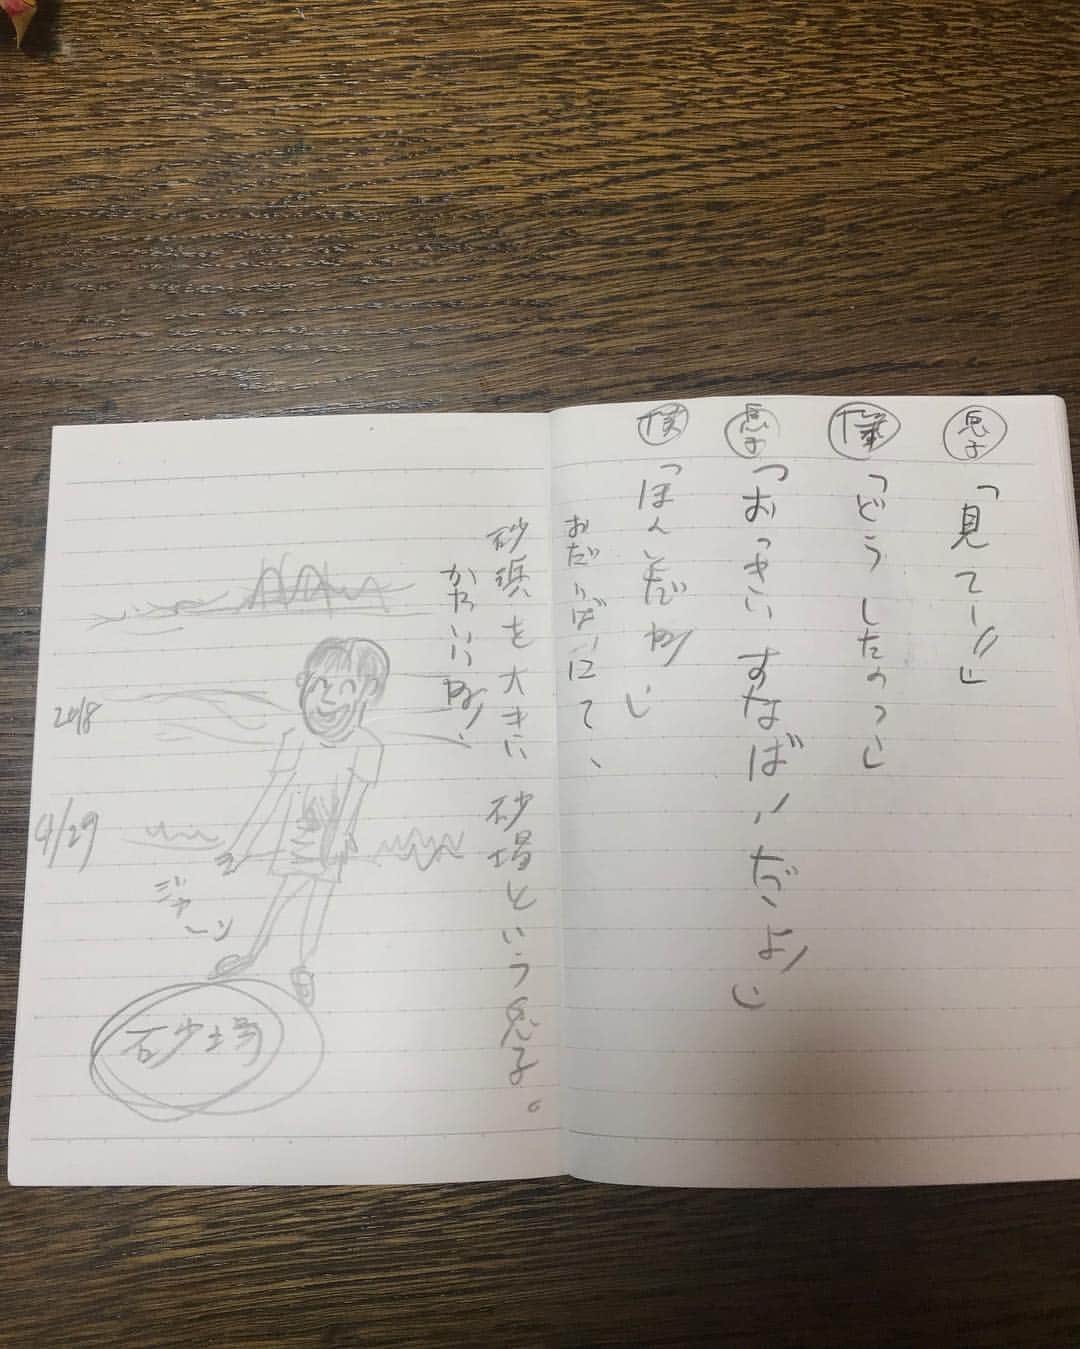 息子 「見てー!!」
僕 「どうしたのっ」
息子 「おっきいすなばーだよ!」
僕 「ほんとだね!」
おだいばーにて、
砂浜を大きい砂場という息子。
かわいいね!
ジャーン
砂場
2018
4/29